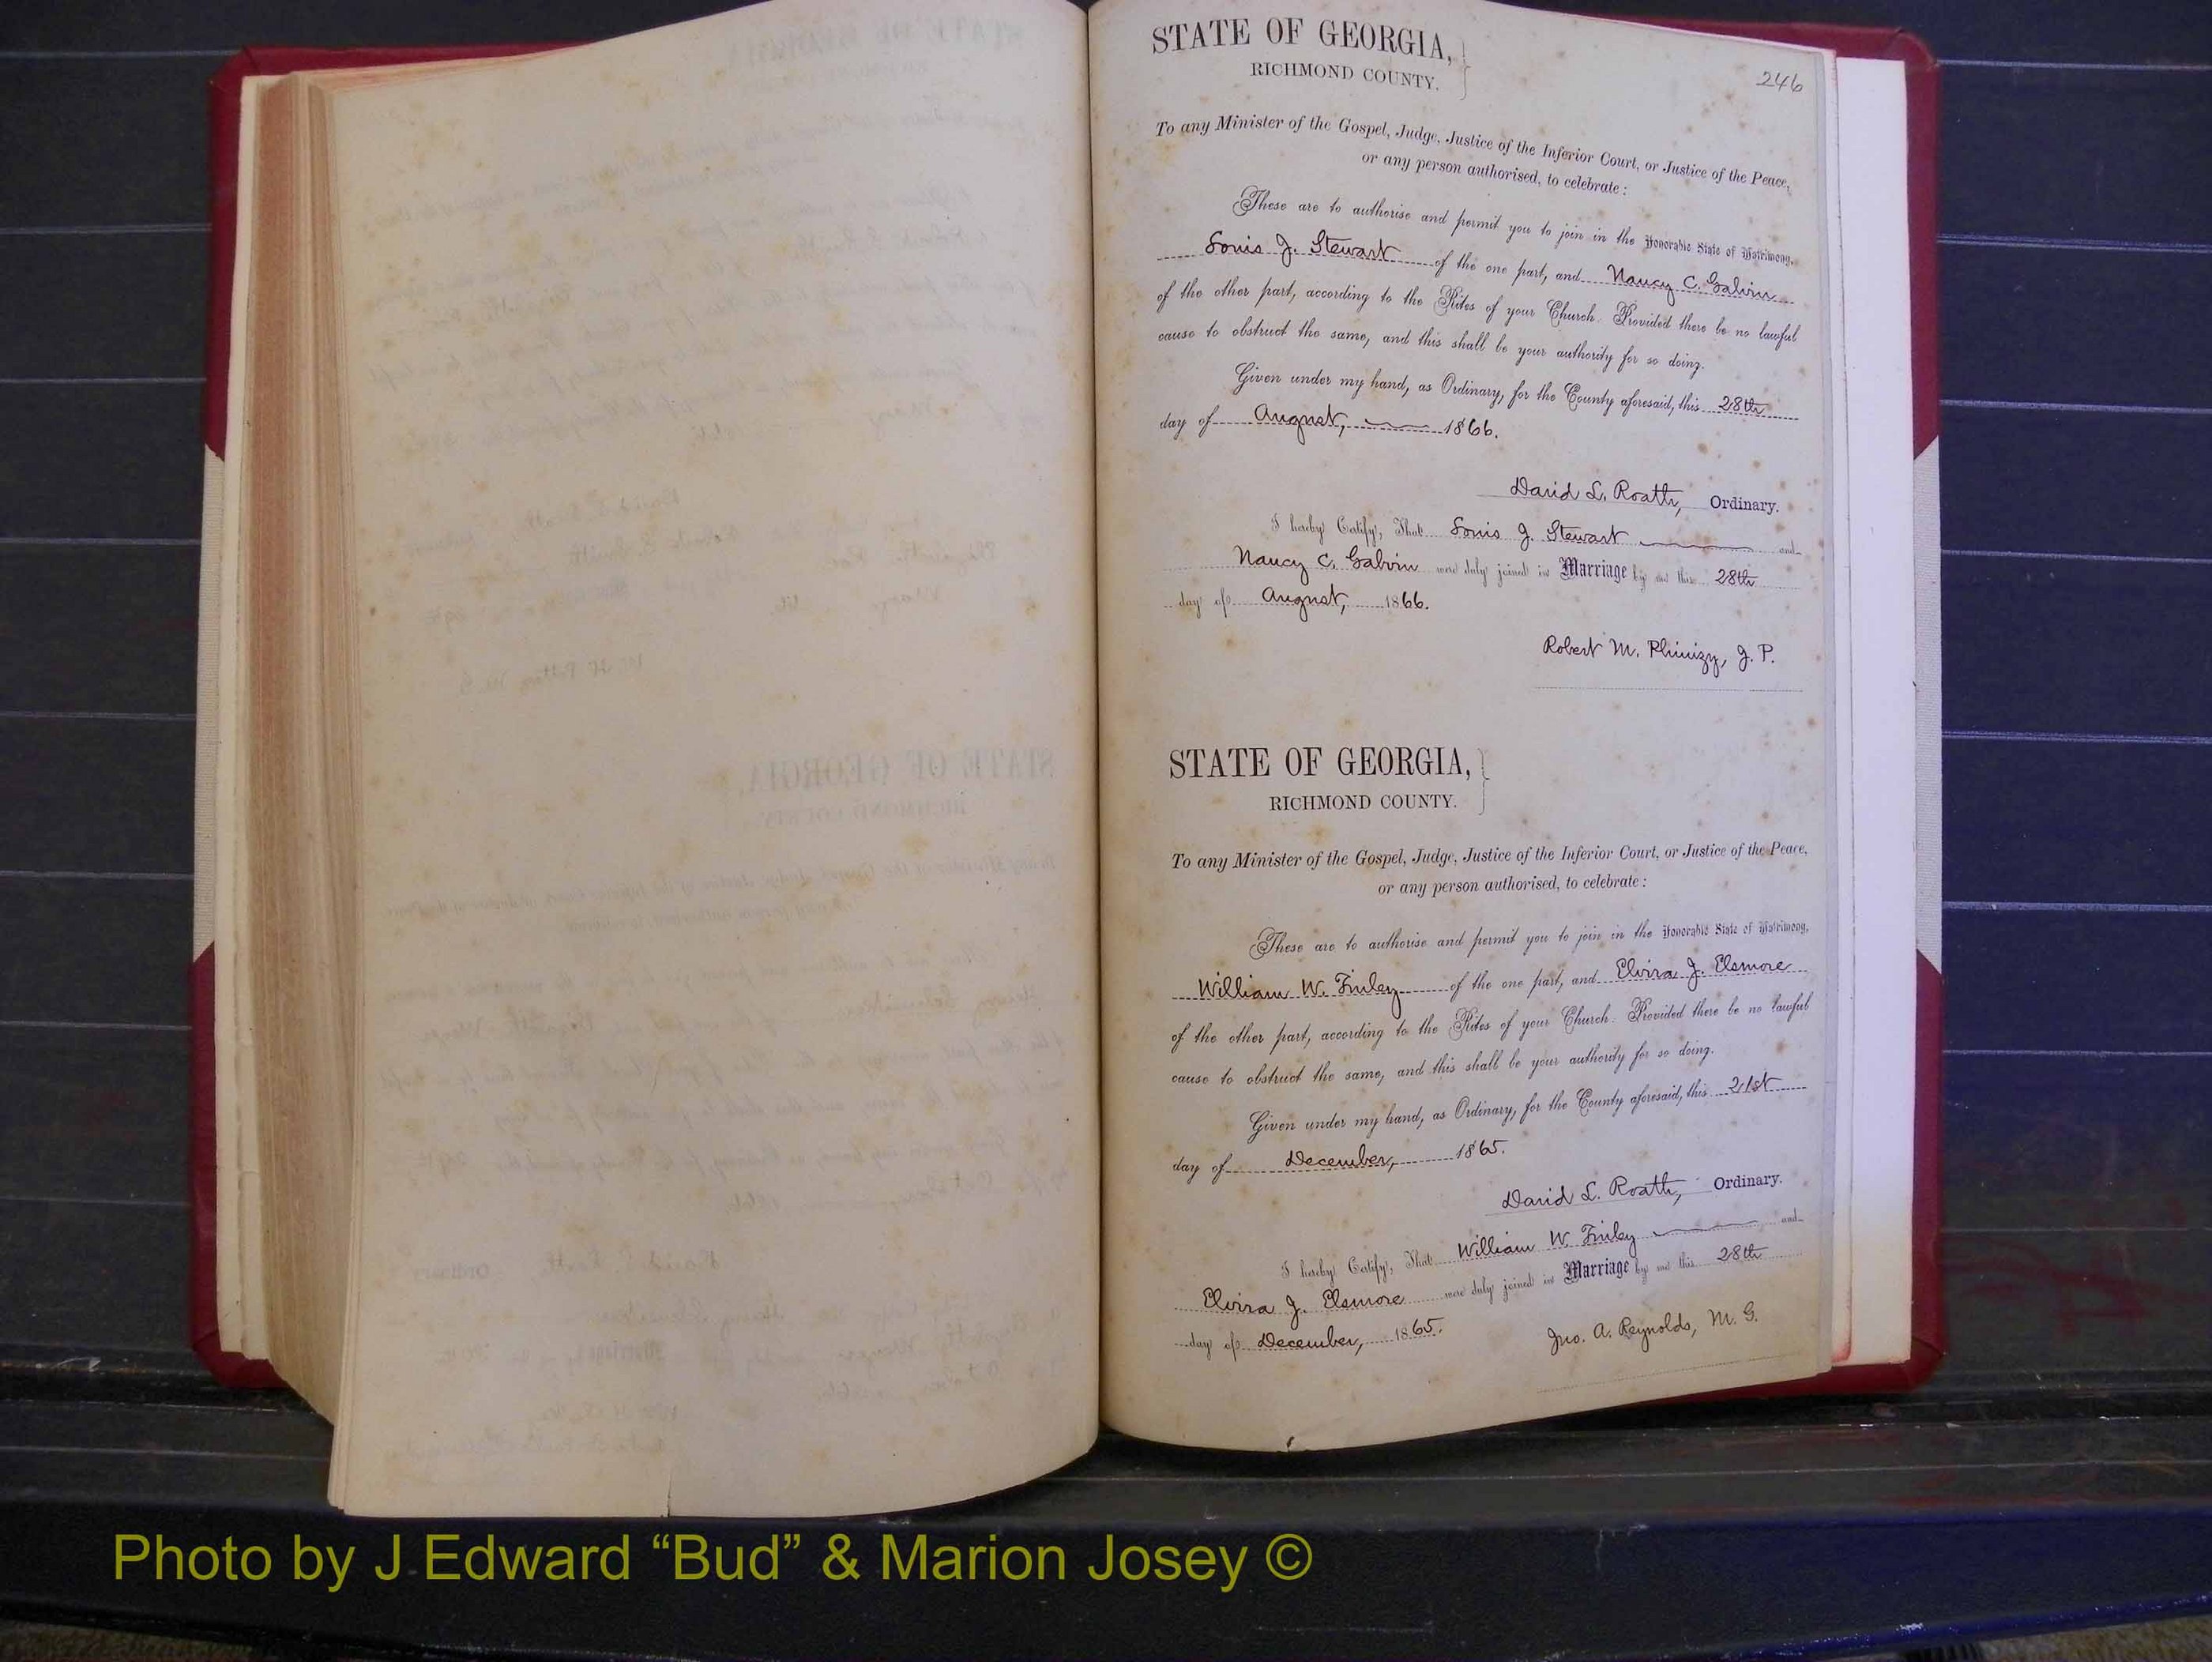 STATE OF GEORGIA,
RICHMOND COUNTY.
246
To any Minister of the Gospel, Judge, Justice of the Inferior Court, or Justice of the Peace,
or any person authorised, to celebrate :
These are to authorise and permit you to join in the Honorable State of Matrimony,
Louis J. Stewart of the one part, and Nancy C. Galvin
of the other part, according to the Rites of your Church. Provided there be no lawful
cause to obstruct the same, and this shall be your authority for so doing.
Given under my hand, as Ordinary, for the County aforesaid, this 28th
day of August, 1866.
David L. Roath, Ordinary.
I hereby Certify, That Louis J. Stewart and
Nancy C. Galvin were duly joined in Marriage by me this 28th
day of August, 1866.
Robert M. Phinizy, J. P.
STATE OF GEORGIA,
RICHMOND COUNTY.
To any Minister of the Gospel, Judge, Justice of the Inferior Court, or Justice of the Peace,
or any person authorised, to celebrate :
These are to authorise and permit you to join in the Honorable State of Matrimony,
William W. Finley of the one part, and Elvira J. Elsmore
of the other part, according to the Rites of your Church. Provided there be no lawful
cause to obstruct the same, and this shall be your authority for so doing.
Given under my hand, as Ordinary, for the County aforesaid, this 21st
day of December, 1865.
David L. Roath, Ordinary.
I hereby Certify, That William W. Finley and
Elvira J. Elsmore were duly joined in Marriage by me this 28th
day of December, 1865.
Jno. A. Reynolds, M. G.
Photo by J Edward “Bud” & Marion Josey ©